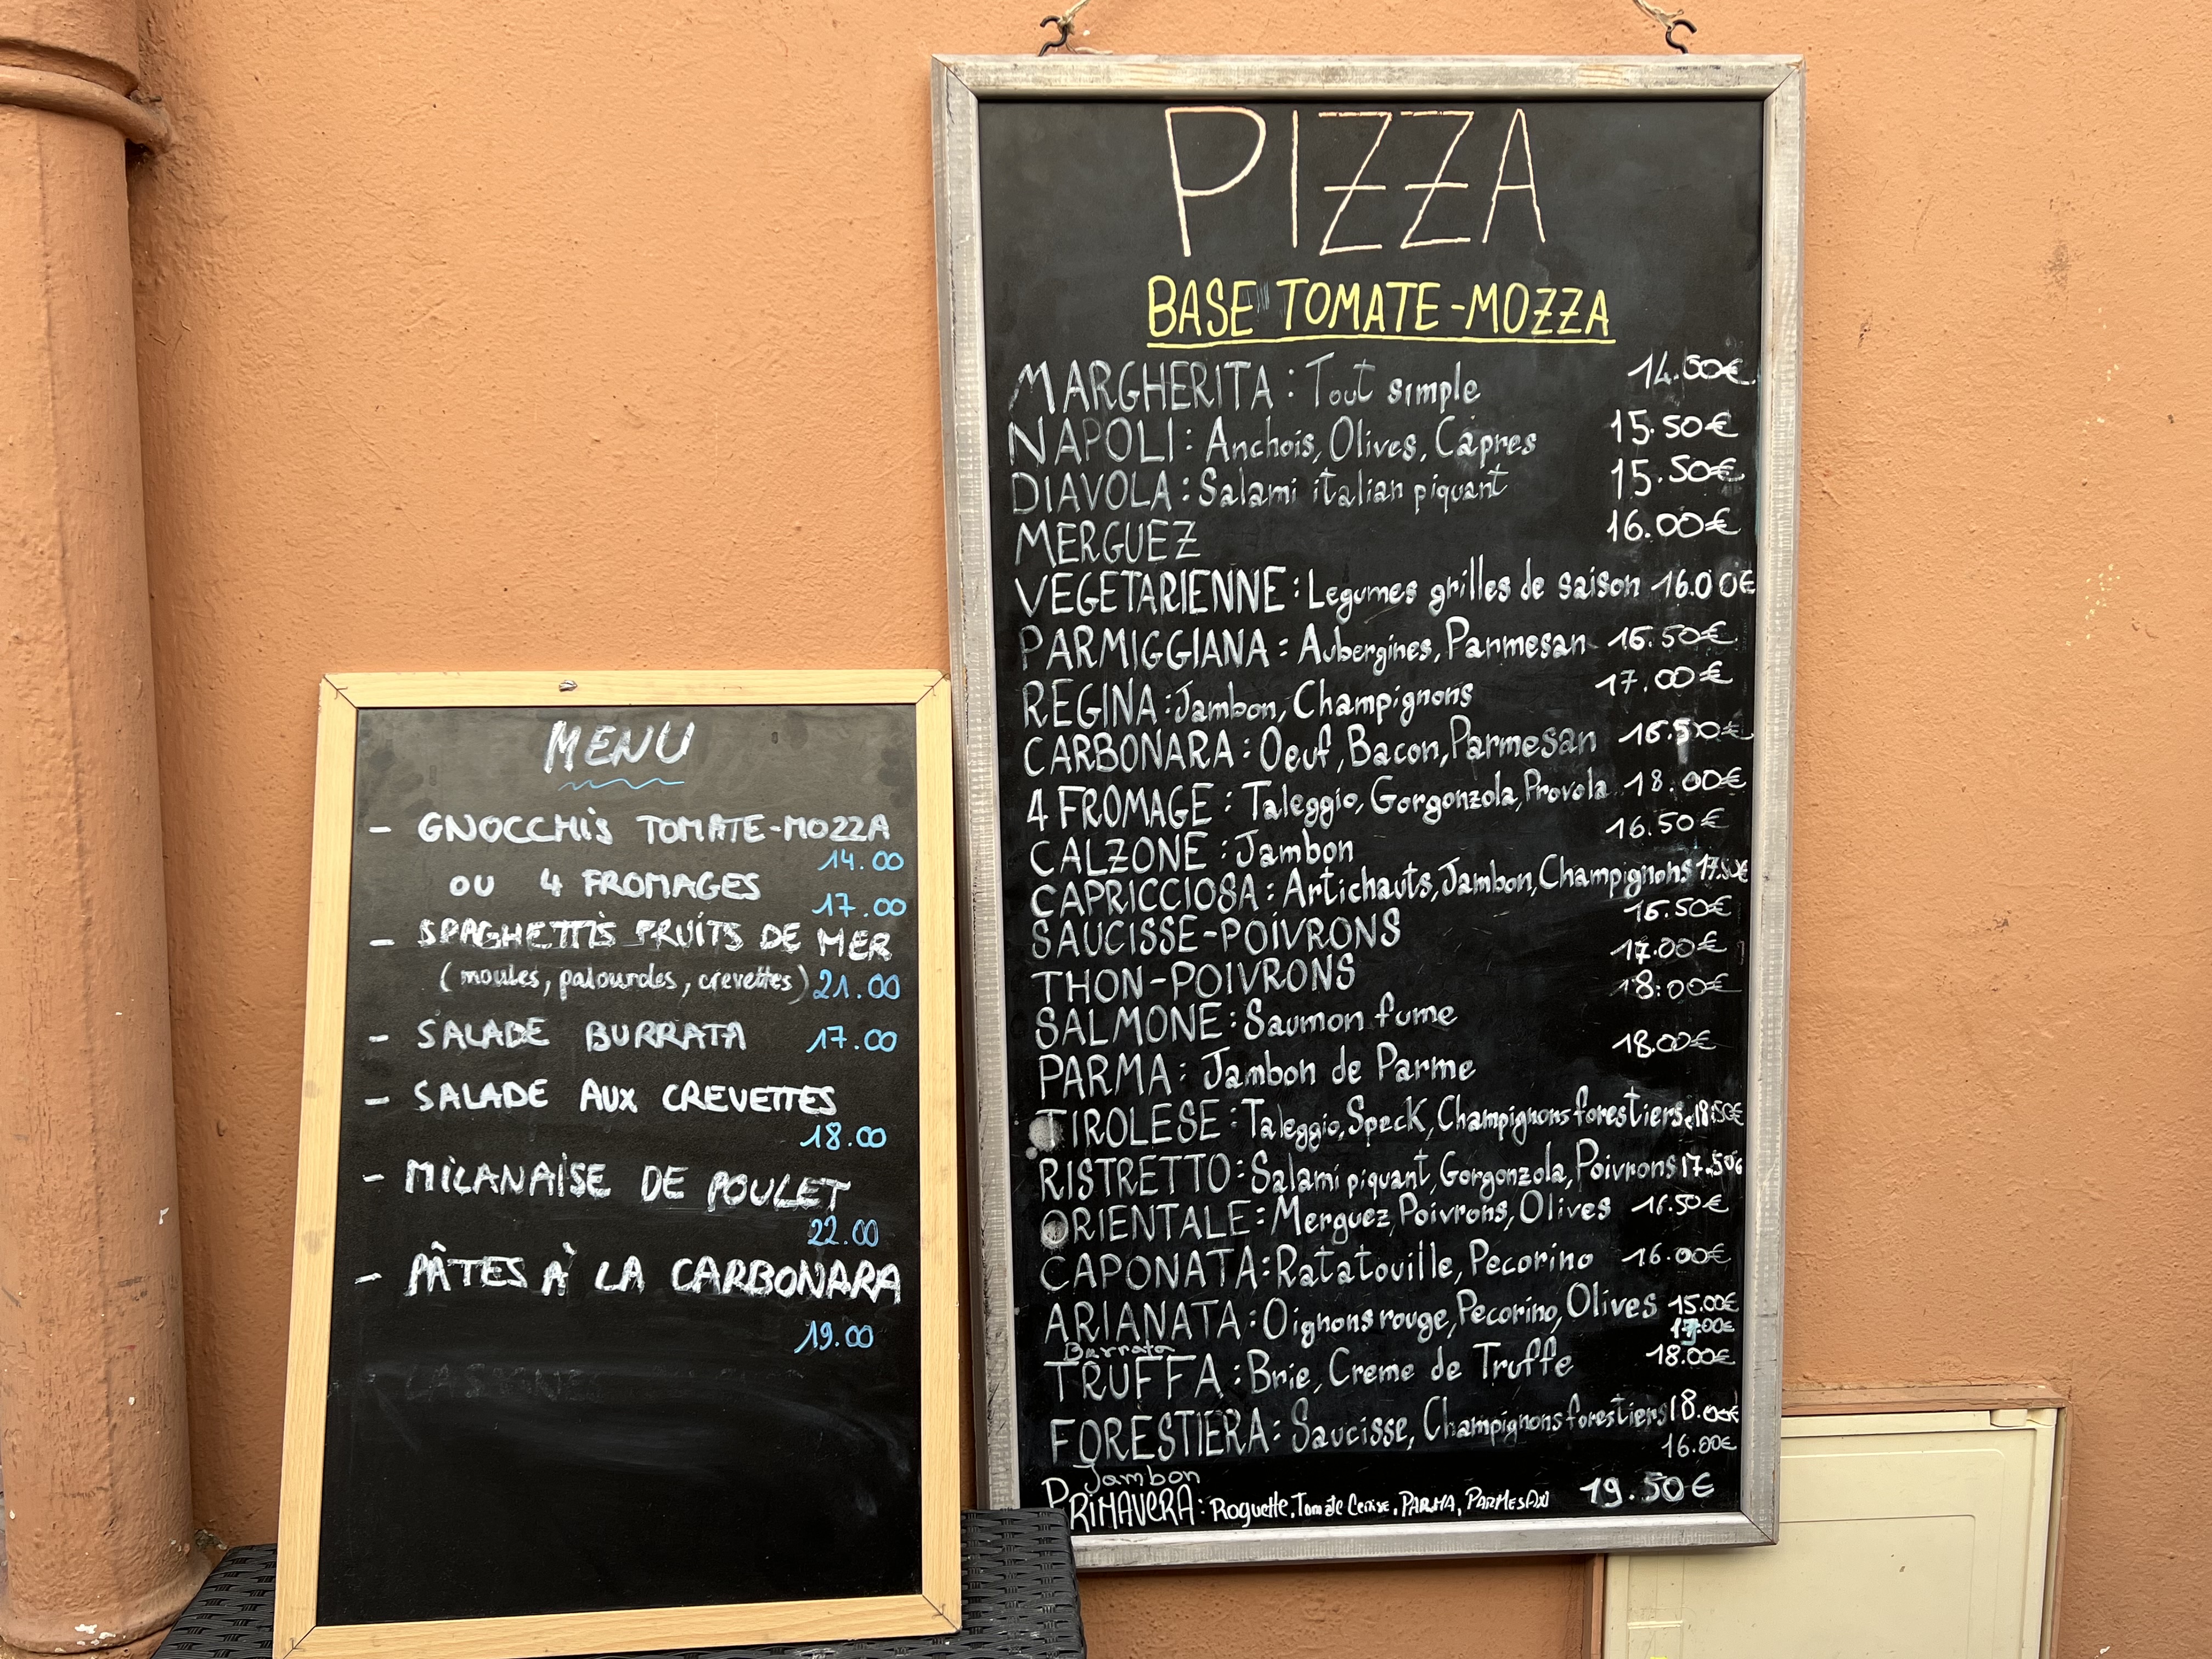 MENU
- GNOCCHIS TOMATE-MOZZA
14.00
OU 4 FROMAGES
17.00
- SPAGHETTIS FRUITS DE MER
(moules, palourdes, crevettes) 21.00
- SALADE BURRATA 17.00
- SALADE AUX CREVETTES
18.00
- MILANAISE DE POULET
22.00
- PÂTES À LA CARBONARA
19.00
PIZZA
BASE TOMATE-MOZZA
MARGHERITA : Tout simple 14.00€
NAPOLI : Anchois, Olives, Capres 15.50€
DIAVOLA : Salami italian piquant 15.50€
MERGUEZ 16.00€
VEGETARIENNE : Legumes grilles de saison 16.00€
PARMIGGIANA : Aubergines, Parmesan 16.50€
REGINA : Jambon, Champignons 17.00€
CARBONARA : Oeuf, Bacon, Parmesan 16.50€
4 FROMAGE : Taleggio, Gorgonzola, Provola 18.00€
CALZONE : Jambon 16.50€
CAPRICCIOSA : Artichauts, Jambon, Champignons 17.50€
SAUCISSE-POIVRONS 16.50€
THON-POIVRONS 17.00€
SALMONE : Saumon fume 18.00€
PARMA : Jambon de Parme 18.00€
TIROLESE : Taleggio, Speck, Champignons forestiers 18.50€
RISTRETTO : Salami piquant, Gorgonzola, Poivrons 17.50€
ORIENTALE : Merguez, Poivrons, Olives 16.50€
CAPONATA : Ratatouille, Pecorino 16.00€
ARIANATA : Oignons rouge, Pecorino, Olives 15.00€
Burrata 17.00€
TRUFFA : Brie, Creme de Truffe 18.00€
FORESTIERA : Saucisse, Champignons forestiers 18.00€
Jambon 16.00€
PRIMAVERA : Roquette, Tomate Cerise, PARMA, PARMESAN 19.50€